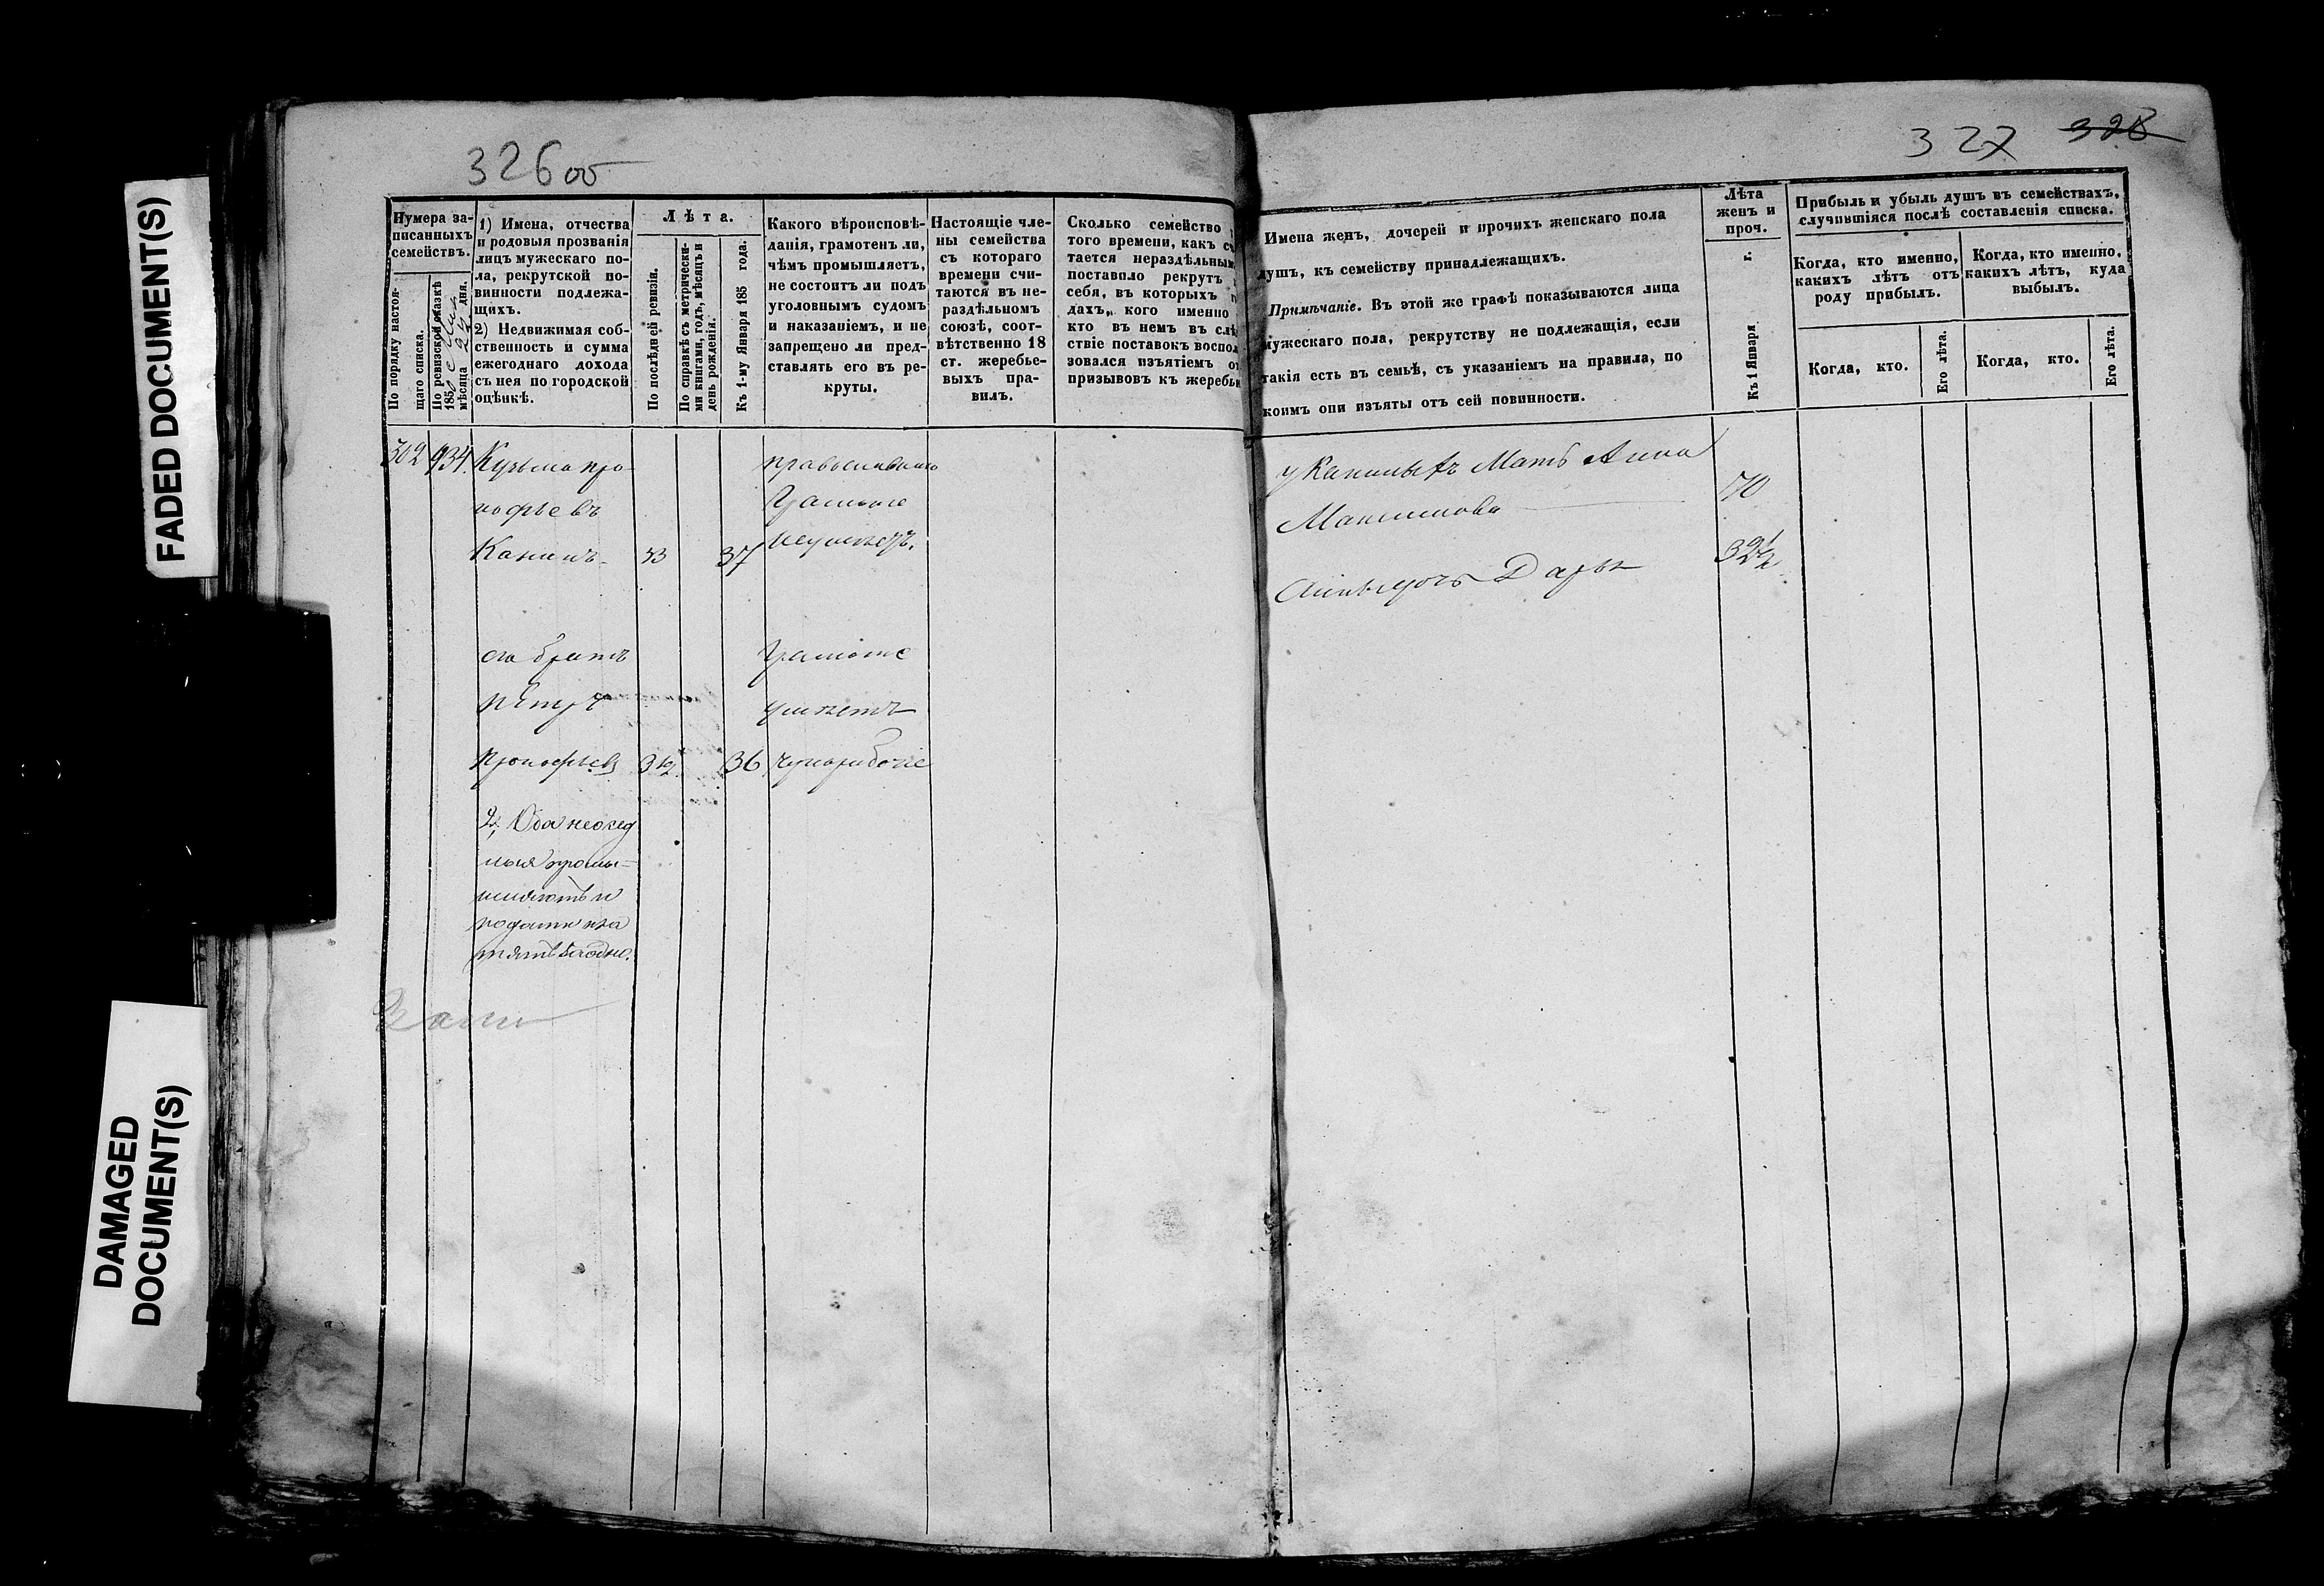 FADED DOCUMENT(S)
DAMAGED
DOCUMENT(S)
326 об
Нумера за-
писанныхъ
семействъ.
По порядку настоя-
щаго списка.
По ревизской сказкѣ
185
мѣсяца 25 дня.
1) Имена, отчества
и родовыя прозванія
лицъ мужескаго по-
ла, рекрутской по-
винности подлежа-
щихъ.
2) Недвижимая соб-
ственность и сумма
ежегоднаго дохода
съ нея по городской
оцѣнкѣ.
Лѣта.
По послѣдней ревизіи.
По справкѣ съ метрически-
ми книгами, годъ, мѣсяцъ и
день рожденія.
Къ 1-му Января 185 года.
Какого вѣроисповѣ-
данія, грамотенъ ли,
чѣмъ промышляетъ,
не состоитъ ли подъ
уголовнымъ судомъ
и наказаніемъ, и не
запрещено ли пред-
ставлять его въ ре-
круты.
Настоящіе чле-
ны семейства
съ котораго
времени счи-
таются въ не-
раздѣльномъ
союзѣ, соот-
вѣтственно 18
ст. жеребье-
выхъ пра-
вилъ.
Сколько семейство
того времени, какъ
тается нераздѣльным
поставило рекрутъ
себя, въ которыхъ
дахъ, кого именно
кто въ немъ въ слѣ
ствіе поставокъ воспол
зовался изъятіемъ от
призывовъ къ жеребью
302 934. Кузьма Про-
кофьевъ
Канинъ 33 37
православнаго
Грамоте
неумѣетъ.
его братъ
Петръ
Прокофьевъ 32 36
Грамоте
умѣетъ
чернорабочіе
2, Оба неосед
лыя промы-
шляютъ и
подати пла
тятъ
327 328
Имена женъ, дочерей и прочихъ женскаго пола
душъ, къ семейству принадлежащихъ.
Примѣчаніе. Въ этой же графѣ показываются лица
мужескаго пола, рекрутству не подлежащія, если
такія есть въ семьѣ, съ указаніемъ на правила, по
коимъ они изъяты отъ сей повинности.
Лѣта
женъ и
проч.
Къ 1 Января г.
Прибыль и убыль душъ въ семействахъ,
случившіяся послѣ составленія списка.
Когда, кто именно,
какихъ лѣтъ отъ
роду прибылъ.
Когда, кто именно,
какихъ лѣтъ, куда
выбылъ.
Когда, кто.
Его лѣта.
Когда, кто.
Его лѣта.
у Каниныхъ Мать Анна
Максимова 70
Дарья 32½